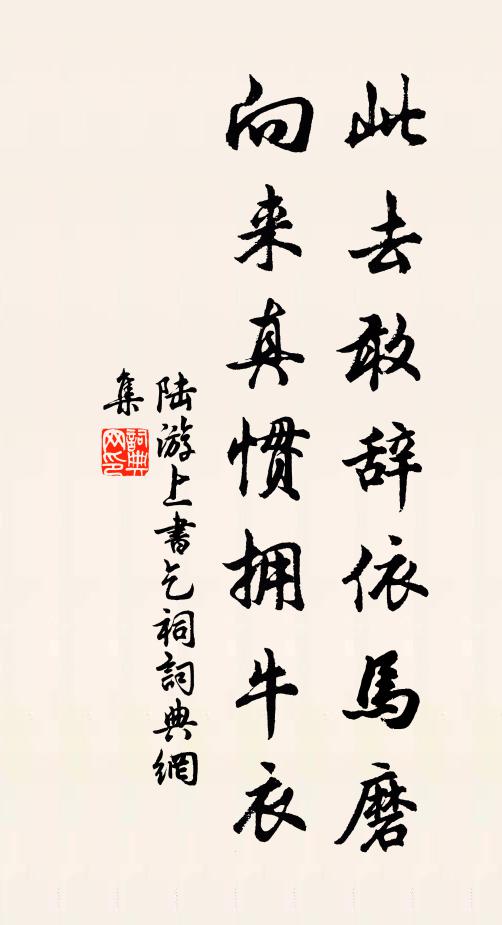 此去敢辞依馬磨
向来真惯拥牛衣
陆游上書乞祠詞典網
集
詞典网印